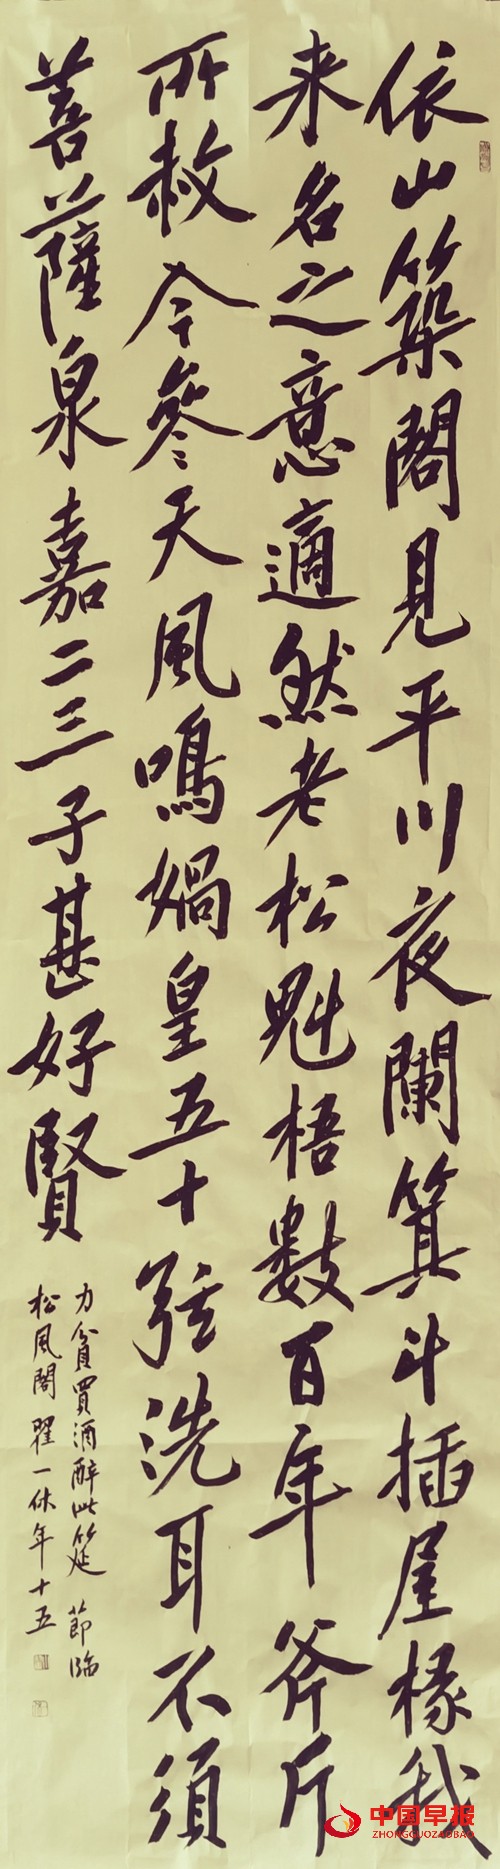 依山築閣見平川夜闌箕斗插屋椽我
来名之意適然老松魁梧數百年斧斤
所赦今參天風鳴媧皇五十弦洗耳不須
菩薩泉嘉二三子甚好賢
力貧買酒醉此筵 節臨
松風閣 瞿一休年十五
中国早报
ZHONGGUOZAOBAO